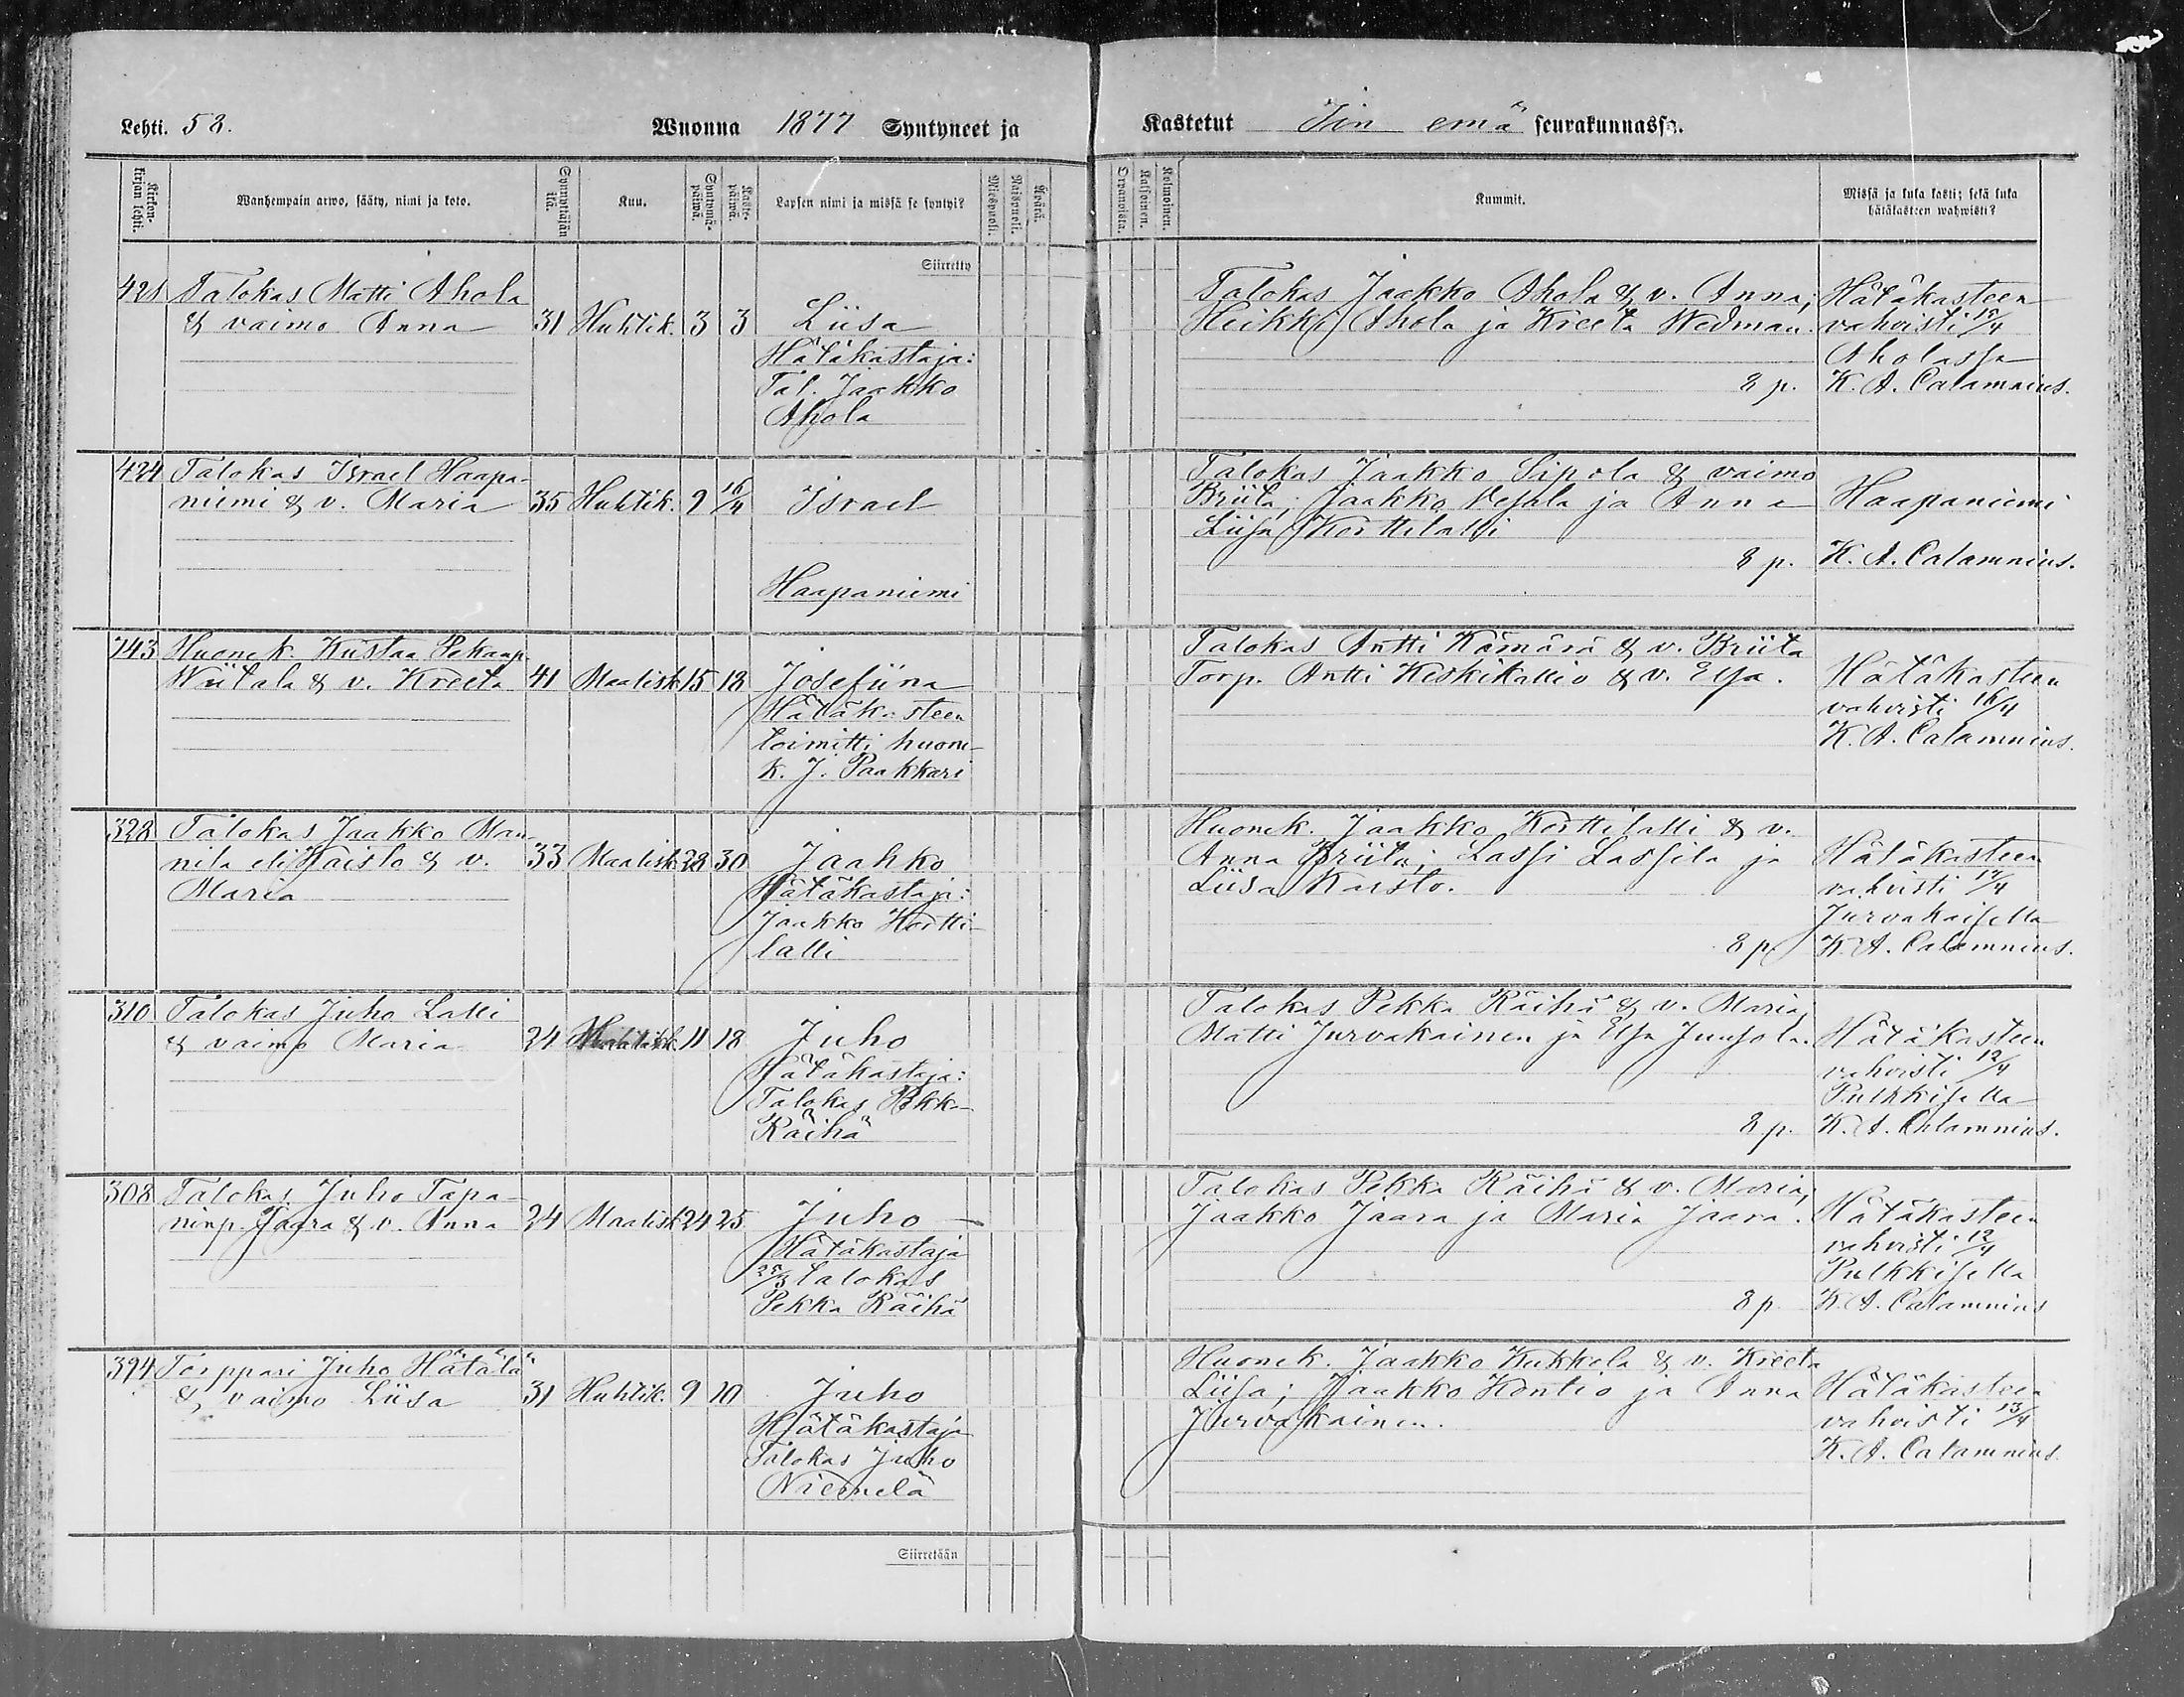 Lehti. 58.
Wuonna 1877 Syntyneet ja
Kastetut Iin emä seurakunnassa.
Kirkonkirjan lehti.
Wanhempain arwo, sääty, nimi ja koto.
Synnyttäjän ikä.
Kuu.
Syntymäpäiwä.
Kastepäiwä.
Lapsen nimi ja missä se syntyi?
Miespuoli.
Waispuoli.
Äpärä.
Kaksoinen.
Kolmoinen.
Kummit.
Missä ja kuka kasti; sekä kuka
hätäkasteen wahwisti?
Siirretty
421 Talokas Matti Ahola
& vaimo Anna 31 Huhtik. 3 3 Liisa
Hätäkastaja:
Tal. Jaakko
Ahola
Talokas Jaakko Ahola & v. Anna;
Heikki Ahola ja Kreeta Wedman.
8 p.
Hätäkasteen
vahvisti 15/4
Aholassa
K. A. Calamnius.
424 Talokas Israel Haapa-
niemi & v. Maria 35 Huhtik. 9 16/4 Israel
Haapaniemi
Talokas Jaakko Sipola & vaimo
Briita; Jaakko Vesala ja Anna
Liisa Korttelalli
8 p.
Haapaniemi
K. A. Calamnius.
243 Huonek. Kustaa Pekanp.
Wiitala & v. Kreeta 41 Maalisk. 15 18 Josefiina
Hätäkasteen
toimitti huone-
k. J. Paakkari
Talokas Antti Kämärä & v. Briita
Torp. Antti Keskikallio & v. Elsa.
Hätäkasteen
vahvisti 16/4
K. A. Calamnius.
328 Talokas Jaakko Man-
nila eli Kaisto & v. 33 Maalisk. 28 30 Jaakko
Maria
Hätäkastaja:
Jaakko Hortti-
lalli
Huonek. Jaakko Korttilalli & v.
Anna Briita; Lassi Lassila ja
Liisa Kaisto.
8 p.
Hätäkasteen
vahvisti 17/4
Jurvakaisella
K. A. Calamnius.
310 Talokas Juho Lalli
& vaimo Maria 24 Maalisk. 11 18 Juho
Hätäkastaja:
Talokas Pekka
Räihä
Talokas Pekka Räihä & v. Maria;
Matti Jurvakainen ja Elsa Juusola.
8 p.
Hätäkasteen
vahvisti 12/4
Pulkkisella
K. A. Calamnius.
308 Talokas Juho Tapa-
ninp. Jaara & v. Anna 24 Maalisk. 24 25 Juho
Hätäkastaja
25/3 talokas
Pekka Räihä
Talokas Pekka Räihä & v. Maria;
Jaakko Jaara ja Maria Jaara.
8 p
Hätäkasteen
vahvisti 12/4
Pulkkisella
K. A. Calamnius
394 Torppari Juho Hätälä
& vaimo Liisa 31 Huhtik. 9 10 Juho
Hätäkastaja
Talokas Juho
Niemelä
Huonek. Jaakko Kukkola & v. Kreeta
Liisa; Jaakko Kontio ja Anna
Jurvakainen.
Hätäkasteen
vahvisti 13/4
K. A. Calamnius
Siirretään